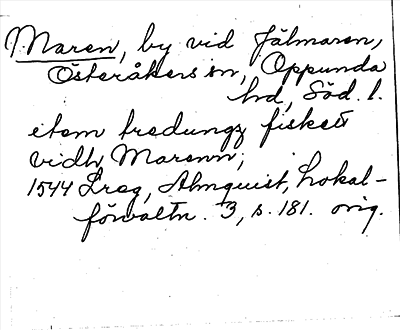 Maren, by vid Jälmaren,
Österåkers sn, Oppunda
hd, Söd. l.
etem tredungz fiskett
vidh Marenn;
1544 Lreg, Almquist, Lokal-
förvaltn. 3, s. 181. orig.